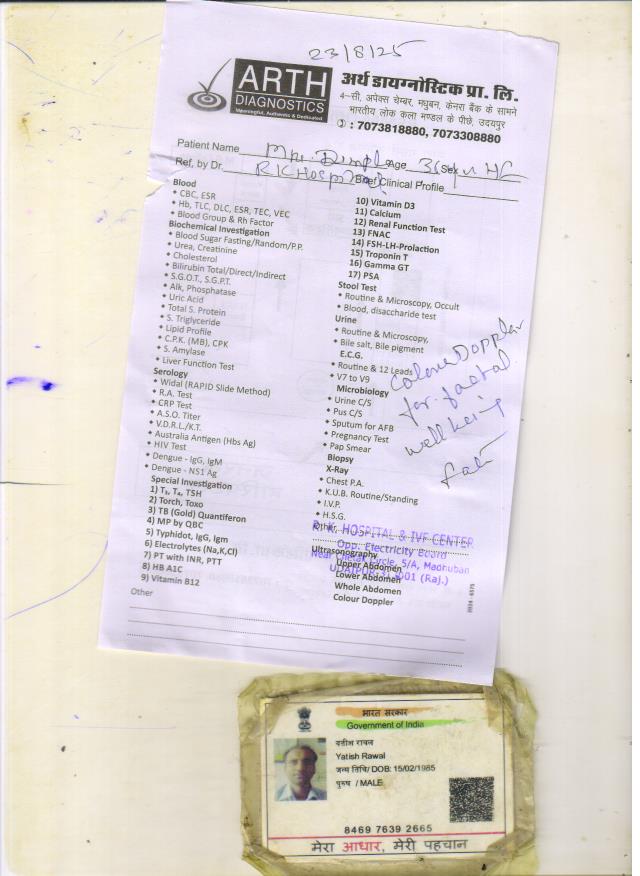 23/8/25
ARTH
DIAGNOSTICS
Meaningful, Authentic & Dedicated
अर्थ डायग्नोस्टिक प्रा. लि.
4-सी, अपेक्स चेम्बर, मधुबन, केनरा बैंक के सामने
भारतीय लोक कला मण्डल के पीछे, उदयपुर
: 7073818880, 7073308880
Patient Name Mrs. Dimple Age Sex
Ref. by Dr. RK Hospital Brief Clinical Profile
Blood
CBC, ESR
Hb, TLC, DLC, ESR, TEC, VEC
Blood Group & Rh Factor
Biochemical Investigation
Blood Sugar Fasting/Random/P.P.
Urea, Creatinine
Cholesterol
Bilirubin Total/Direct/Indirect
S.G.O.T., S.G.P.T.
Alk, Phosphatase
Uric Acid
Total S. Protein
S. Triglyceride
Lipid Profile
C.P.K. (MB), CPK
S. Amylase
Liver Function Test
Serology
Widal (RAPID Slide Method)
R.A. Test
CRP Test
A.S.O. Titer
V.D.R.L./K.T.
Australia Antigen (Hbs Ag)
HIV Test
Dengue - IgG, IgM
Dengue - NS1 Ag
Special Investigation
1) T₃, T₄, TSH
2) Torch, Toxo
3) TB (Gold) Quantiferon
4) MP by QBC
5) Typhidot, IgG, Igm
6) Electrolytes (Na,K,Cl)
7) PT with INR, PTT
8) HB A1C
9) Vitamin B12
Other
10) Vitamin D3
11) Calcium
12) Renal Function Test
13) FNAC
14) FSH-LH-Prolaction
15) Troponin T
16) Gamma GT
17) PSA
Stool Test
Routine & Microscopy, Occult
Blood, disaccharide test
Urine
Routine & Microscopy,
Bile salt, Bile pigment
E.C.G.
Routine & 12 Leads
V7 to V9
Microbiology
Urine C/S
Pus C/S
Sputum for AFB
Pregnancy Test
Pap Smear
Biopsy
X-Ray
Chest P.A.
K.U.B. Routine/Standing
I.V.P.
H.S.G.
Other
Ultrasonography
Upper Abdomen
Lower Abdomen
Whole Abdomen
Colour Doppler
Colour Doppler
for faetal
well being
R. K. HOSPITAL & IVF CENTER
Opp. Electricity Board
Near Circle, 5/A, Madhuban
UDAIPUR-313001 (Raj.)
भारत सरकार
Government of India
यतीश रावल
Yatish Rawal
जन्म तिथि/ DOB: 15/02/1985
पुरुष / MALE
8469 7639 2665
मेरा आधार, मेरी पहचान